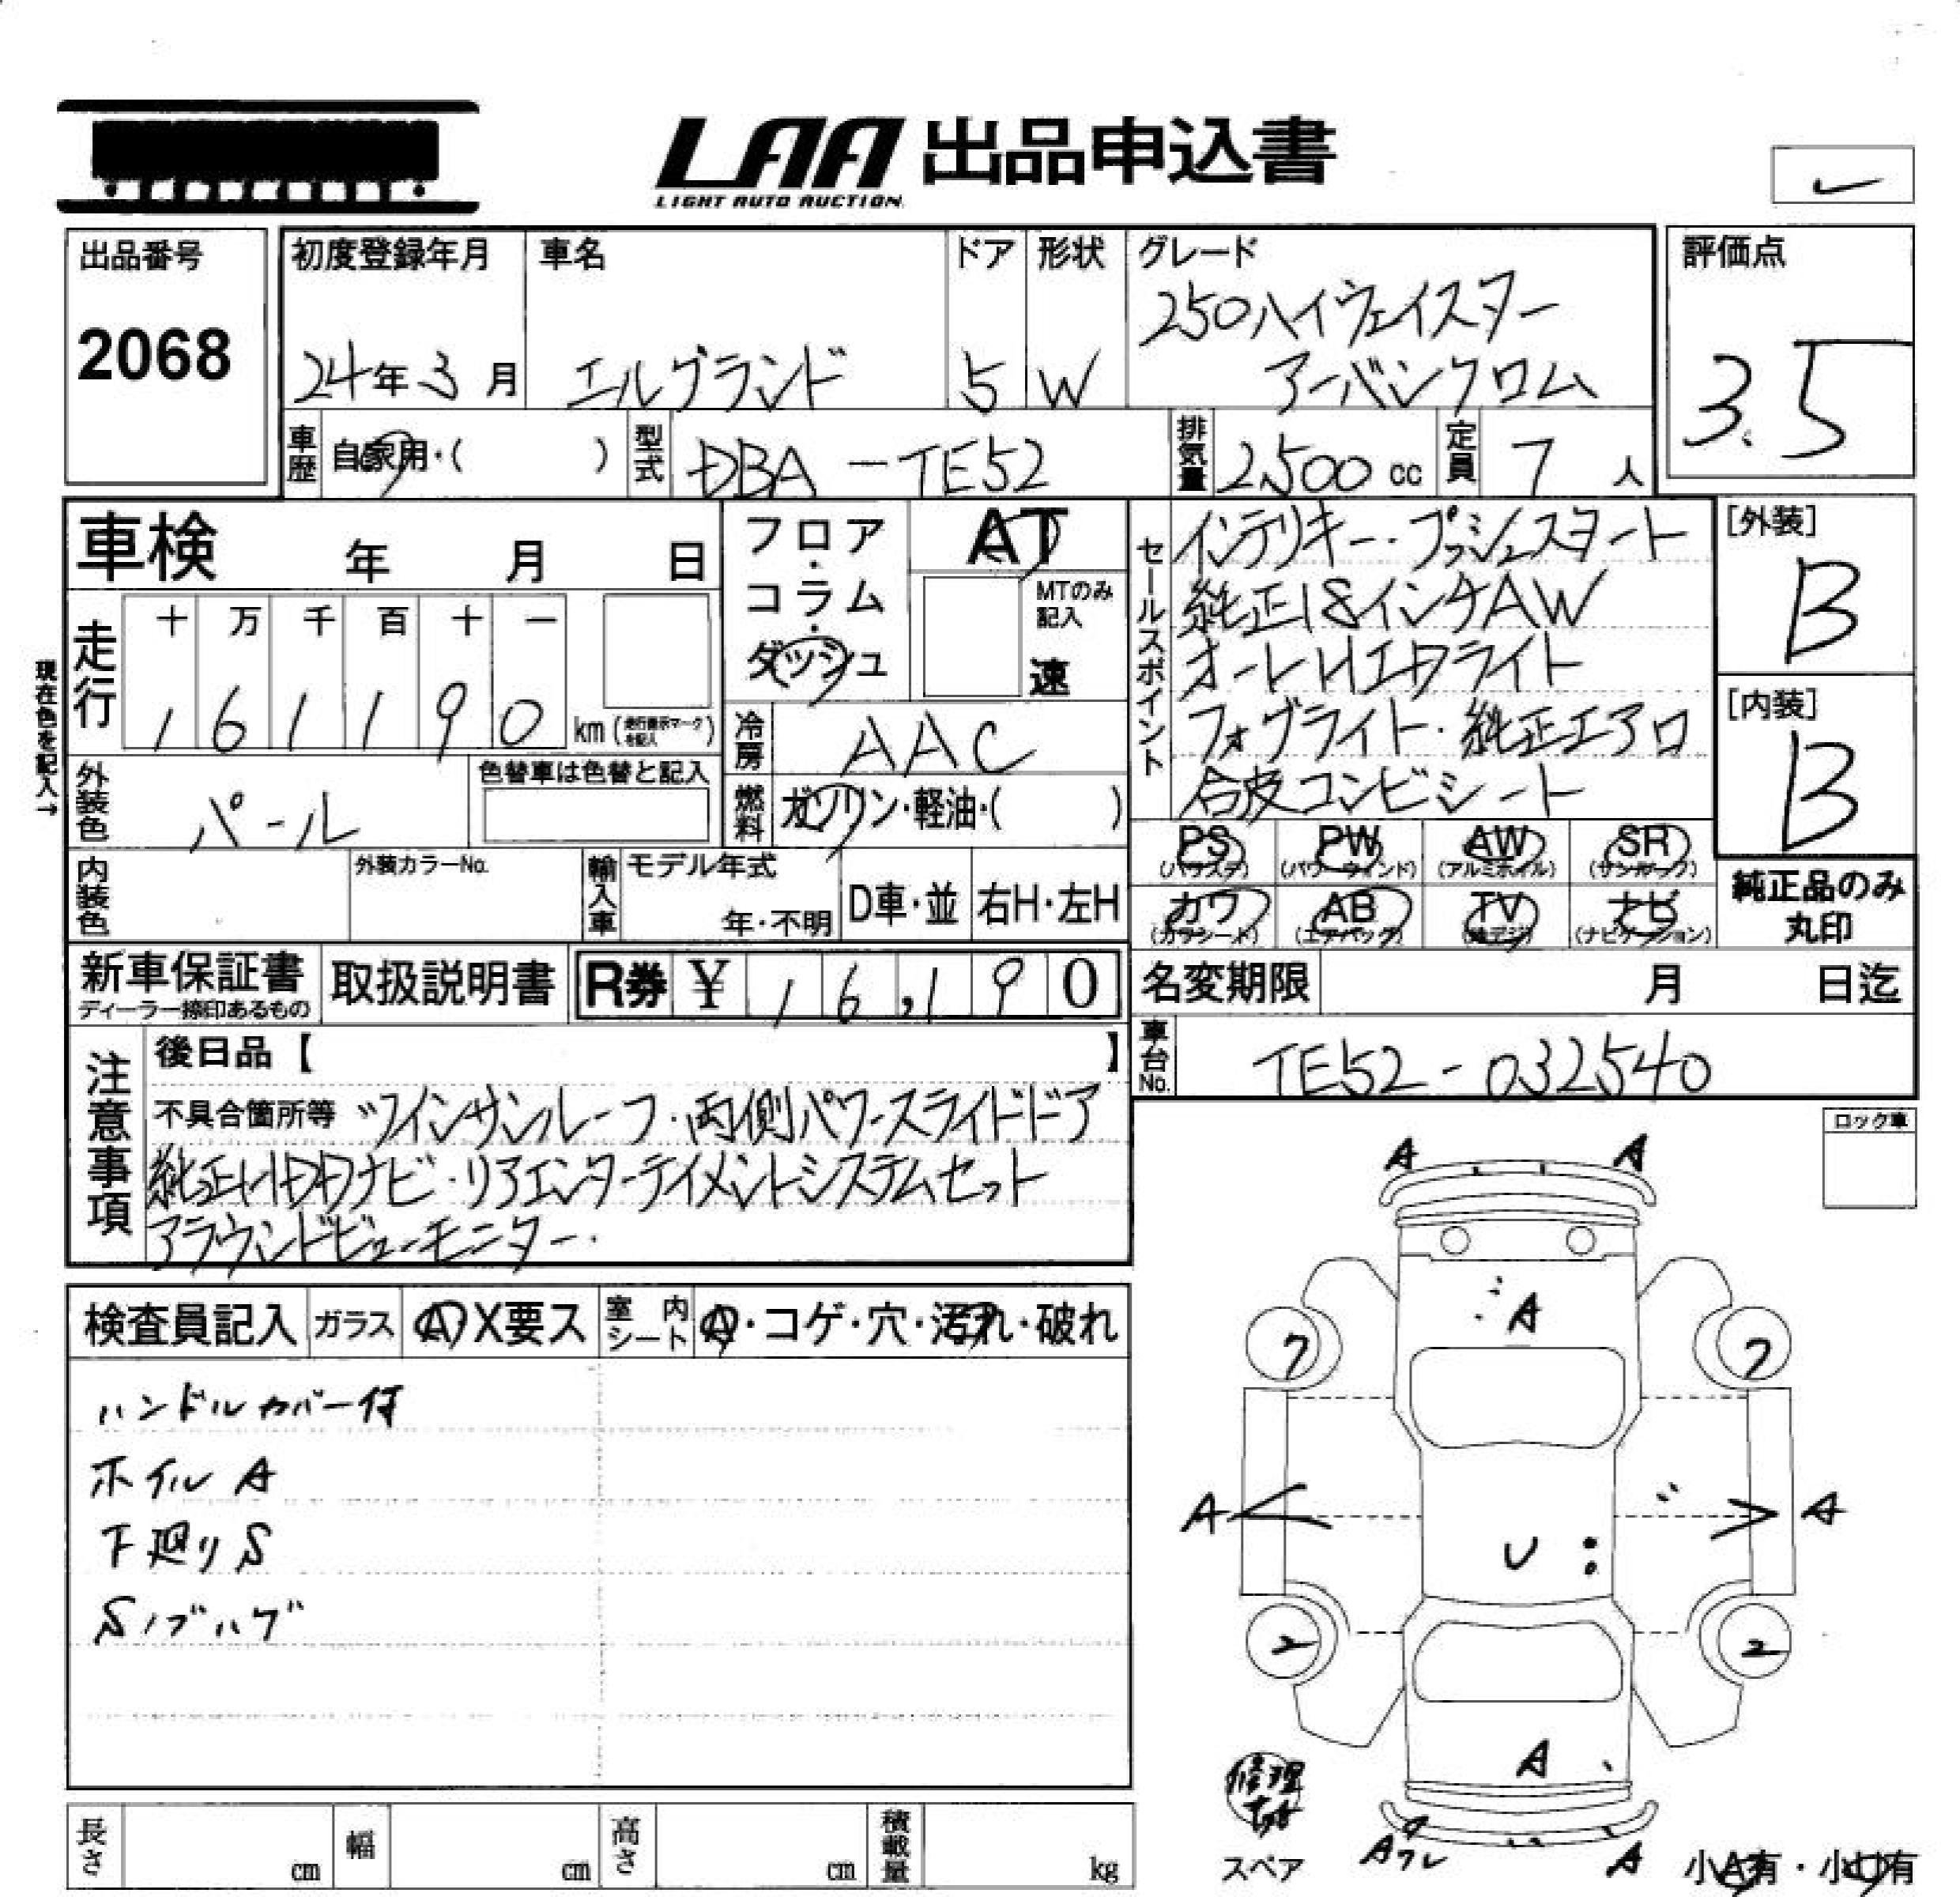 LAA 出品申込書
LIGHT AUTO AUCTION
出品番号
2068
初度登録年月
24年3月
車名
エルグランド
ドア
5
形状
W
グレード
250ハイウェイスター
アーバンクロム
評価点
3.5
車歴 自家用・( )
型式 DBA-TE52
排気量 2,500 cc
定員 7 人
車検 年 月 日
フロア・コラム・ダッシュ
AT
MTのみ記入
速
セールスポイント
インテリキー・プッシュスタート
純正18インチAW
オートHIDライト
フォグライト・純正エアロ
合皮コンビシート
[外装]
B
[内装]
B
現在色を記入→
走行
十 万 千 百 十 一
1 6 1 1 9 0 km (走行表示マークを記入)
冷房 AAC
外装色 パール
色替車は色替と記入
燃料 ガソリン・軽油・( )
内装色
外装カラーNo.
輸入車
モデル年式
年・不明
D車・並
右H・左H
PS (パワステ)
PW (パワーウィンド)
AW (アルミホイル)
SR (サンルーフ)
カワ (カワシート)
AB (エアバック)
TV (地デジ)
ナビ (ナビゲーション)
純正品のみ
丸印
新車保証書
ディーラー捺印あるもの
取扱説明書
R券 ¥ 16,190
名変期限 月 日迄
車台No. TE52-032540
注意事項
後日品【 】
不具合箇所等 ツインサンルーフ・両側パワースライドドア
純正HDDナビ・リアエンターテイメントシステムセット
アラウンドビューモニター・
ロック車
検査員記入
ガラス A X要ス
室内シート A・コゲ・穴・汚れ・破れ
ハンドルカバー付
ホイルA
下廻りS
Sノブハゲ
A A
A
7 7
A A
U
2 2
A
修理
スペア
Aワレ A
小A有・小U有
長さ cm
幅 cm
高さ cm
積載量 kg